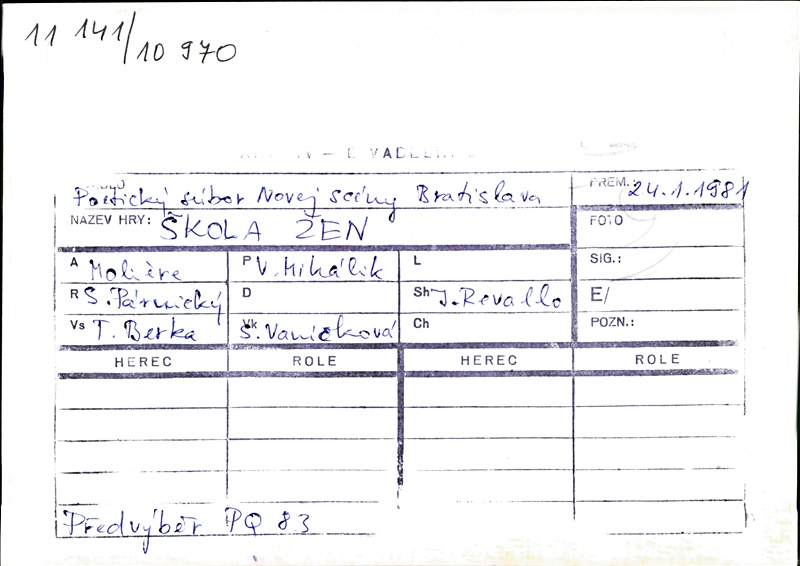 11 141/10 970
PREM.: 24.1.1981
Poetický súbor Novej scény Bratislava
NAZEV HRY: ŠKOLA ŽEN
FOTO
A Molière P V. Mihálik L
SIG.:
R S. Párnický D Sh J. Revallo
E/
Vs T. Berka Vk S. Vaničková Ch
POZN.:
HEREC ROLE HEREC ROLE
Předvýběr PQ 83